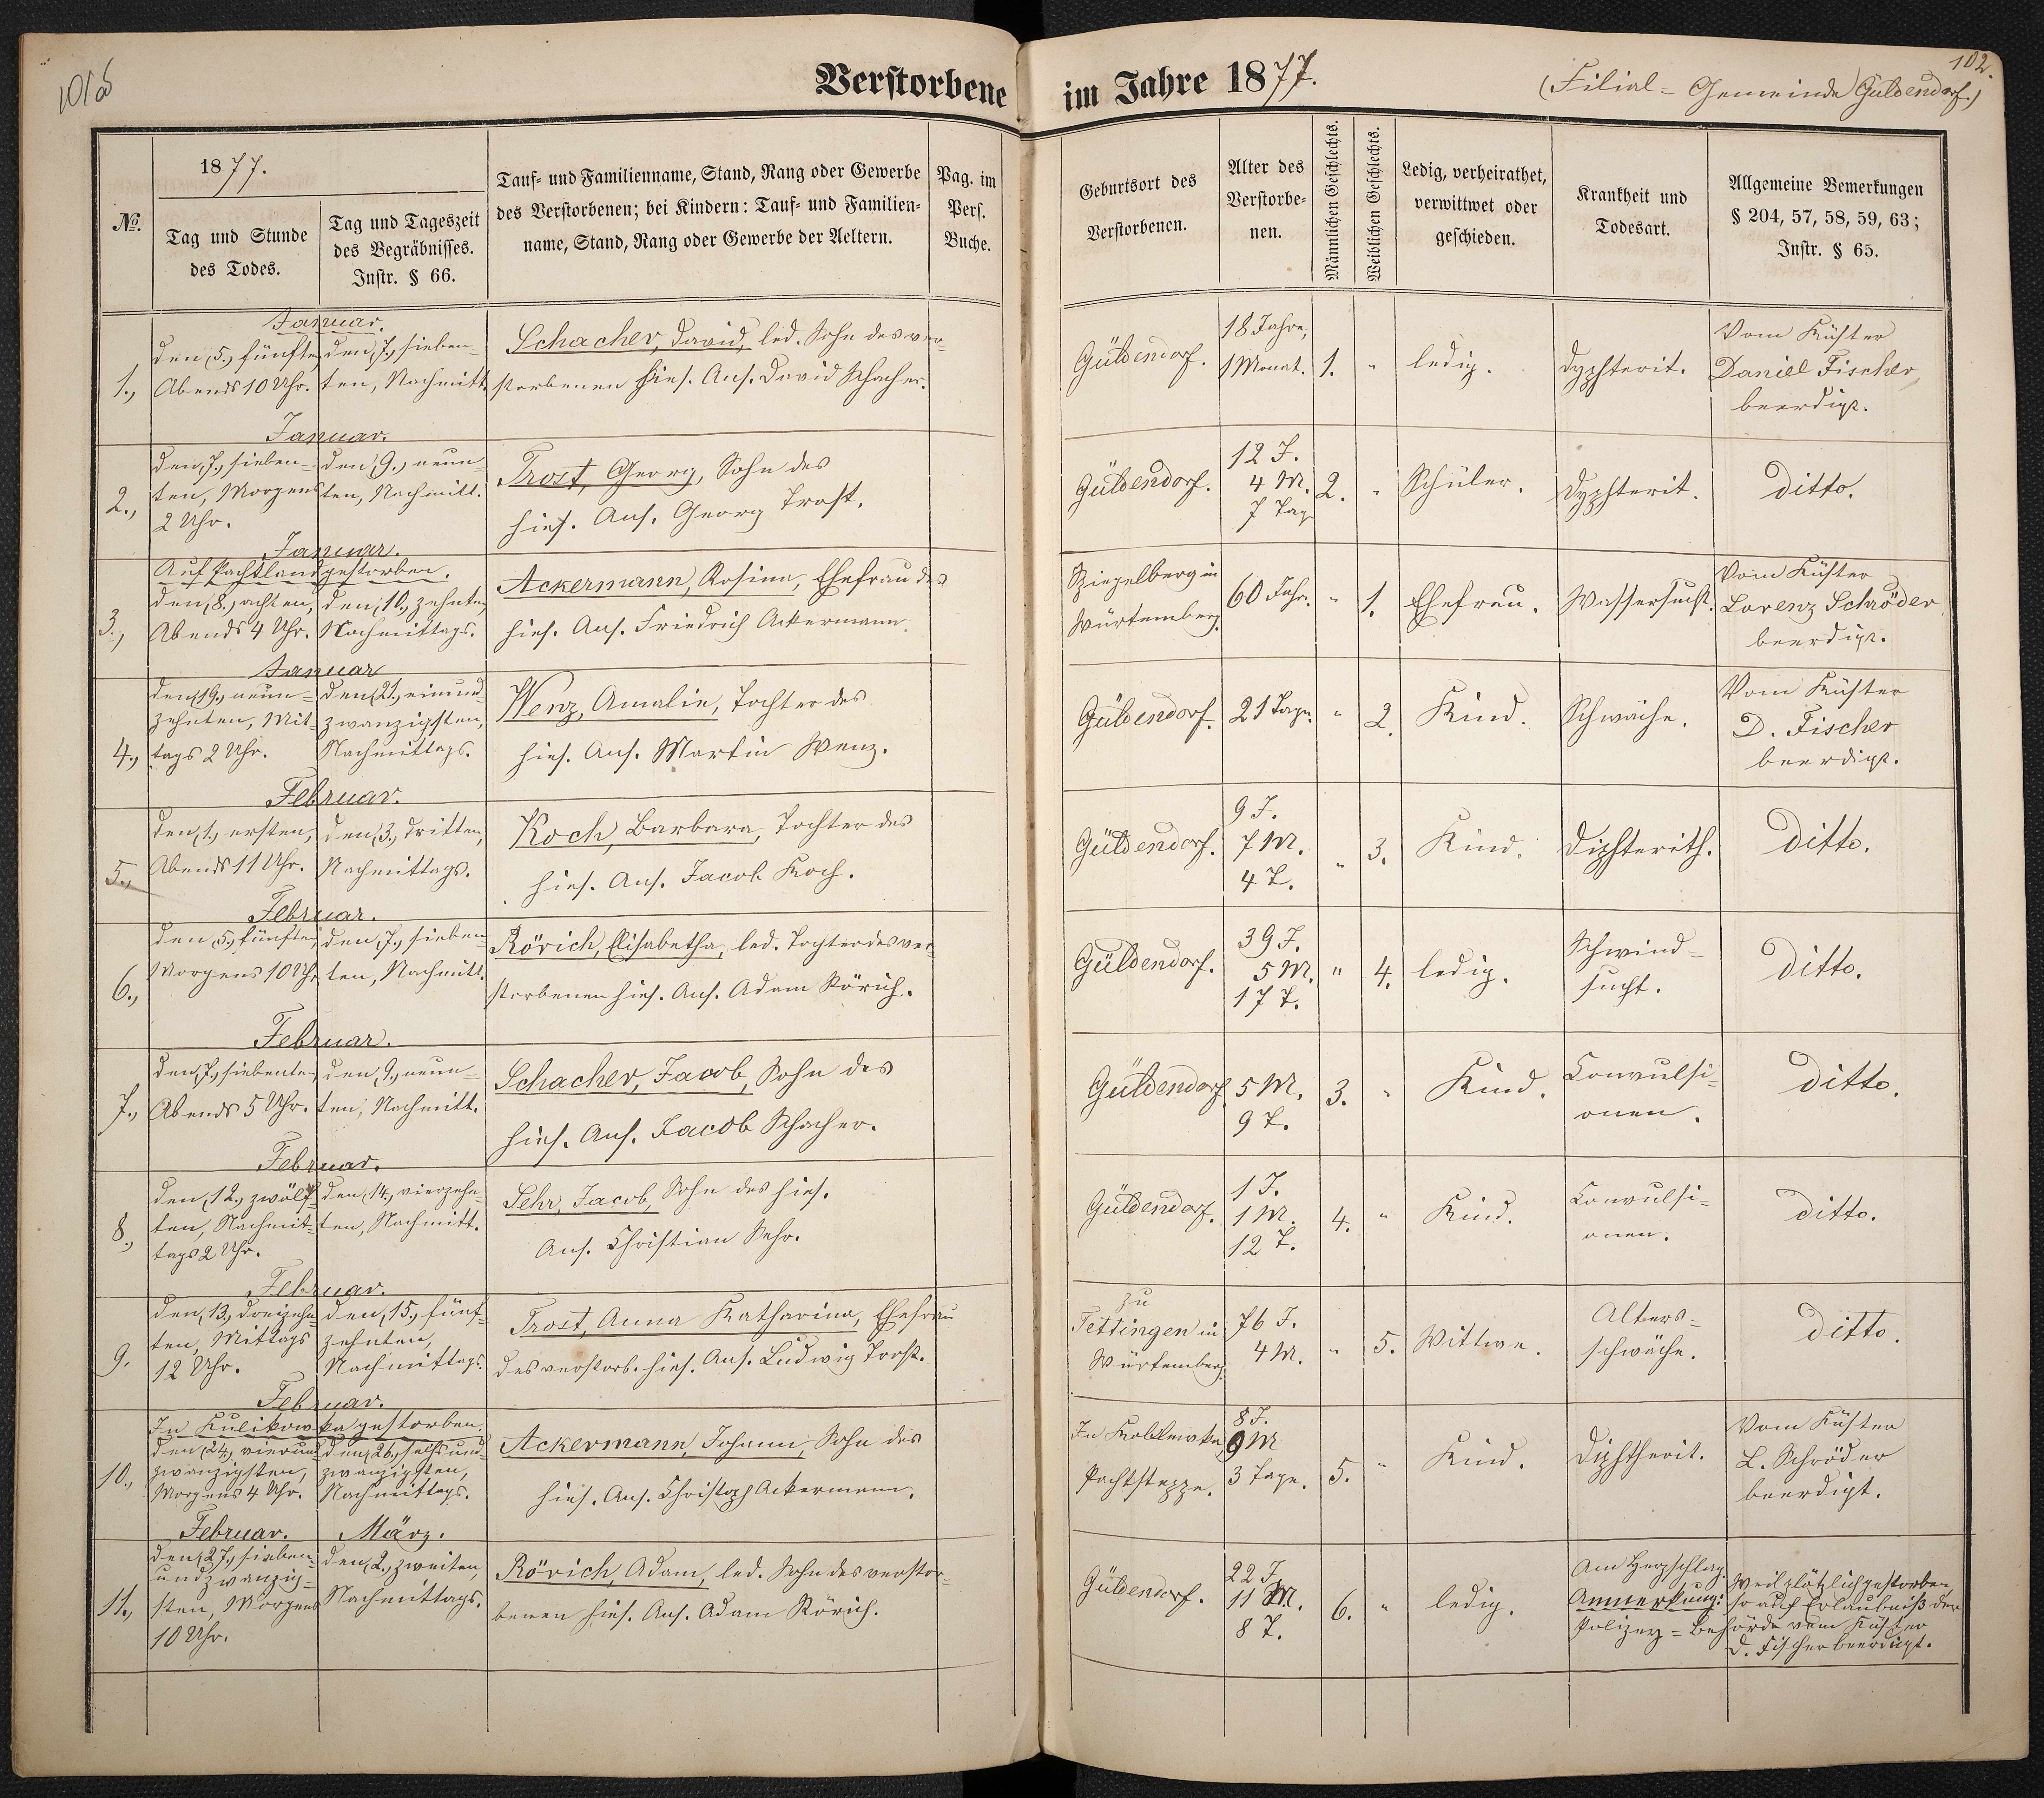 101b
Verstorbene im Jahre 1877.
(Filial-Gemeinde Güldendorf.)
102.
№.
1877.
Tag und Stunde
des Todes.
Tag und Tageszeit
des Begräbnisses.
Instr. § 66.
Tauf- und Familienname, Stand, Rang oder Gewerbe
des Verstorbenen; bei Kindern: Tauf- und Familien-
name, Stand, Rang oder Gewerbe der Aeltern.
Pag. im
Pers.
Buche.
Geburtsort des
Verstorbenen.
Alter des
Verstorbe-
nen.
Männlichen Geschlechts.
Weiblichen Geschlechts.
Ledig, verheirathet,
verwittwet oder
geschieden.
Krankheit und
Todesart.
Allgemeine Bemerkungen
§ 204, 57, 58, 59, 63;
Instr. § 65.
Januar.
1.,
den 5., fünften,
Abends 10 Uhr.
den 7., sieben-
ten, Nachmitt.
Schacher, David, led. Sohn des ver-
storbenen hies. Ans. David Schacher.
Güldendorf.
18 Jahre,
1 Monat.
1.
"
ledig.
Dyphterit.
Vom Küster
Daniel Fischer
beerdigt.
Januar.
2.,
den 7., sieben-
ten, Morgens
2 Uhr.
den 9., neun-
ten, Nachmitt.
Trost, Georg, Sohn des
hies. Ans. Georg Trost.
Güldendorf.
12 J.
4 M.
7 Tag
2.
"
Schüler.
Dyphterit.
ditto.
Januar.
Auf Pachtland gestorben.
3.,
den 8., achten,
Abends 4 Uhr.
den 10., zehnten,
Nachmittags.
Ackermann, Rosina, Ehefrau des
hies. Ans. Friedrich Ackermann.
Spiegelberg in
Würtemberg.
60 Jahr.
"
1.
Ehefrau.
Wassersucht.
Vom Küster
Lorenz Schröder
beerdigt.
Januar
4.,
den 19., neun-
zehnten, Mit-
tags 2 Uhr.
den 21., einund-
zwanzigsten,
Nachmittags.
Wenz, Amalie, Tochter des
hies. Ans. Martin Wenz.
Güldendorf.
21 Tage.
"
2.
Kind.
Schwäche.
Vom Küster
D. Fischer
beerdigt.
Februar.
5.,
den 1., ersten,
Abends 11 Uhr.
den 3., dritten,
Nachmittags.
Koch, Barbara, Tochter des
hies. Ans. Jacob Koch.
Güldendorf.
9 J.
7 M.
4 T.
"
3.
Kind.
Diphterith.
ditto.
Februar.
6.,
den 5., fünften,
Morgens 10 Uhr
den 7., sieben-
ten, Nachmitt.
Rörich, Elisabetha, led. Tochter des ver-
storbenen hies. Ans. Adam Rörich.
Güldendorf.
39 J.
5 M.
17 T.
"
4.
ledig.
Schwind-
sucht.
ditto.
Februar.
7.,
den 7., siebenten,
Abends 5 Uhr.
den 9., neun-
ten, Nachmitt.
Schacher, Jacob, Sohn des
hies. Ans. Jacob Schacher.
Güldendorf
5 M.
9 T.
3.
"
Kind.
Convulsi-
onen.
ditto.
Februar.
8.,
den 12., zwölf-
ten, Nachmit-
tags 2 Uhr.
den 14., vierzehn-
ten, Nachmitt.
Sehr, Jacob, Sohn des hies.
Ans. Christian Sehr.
Güldendorf.
1 J.
1 M.
12 T.
4.
"
Kind.
Convulsi-
onen.
ditto.
Februar.
9.
den 13., dreizehn-
ten, Mittags
12 Uhr.
den 15., fünf-
zehnten,
Nachmittags.
Trost, Anna Katharina, Ehefrau
des verstorb. hies. Ans. Ludwig Trost.
zu
Tettingen in
Würtemberg.
76 J.
4 M.
"
5.
Wittwe.
Alters-
schwäche.
ditto.
Februar.
In Kulikowka gestorben.
10.,
den 24., vierund-
zwanzigsten,
Morgens 4 Uhr.
den 26., sechsund-
zwanzigsten,
Nachmittags.
Ackermann, Johann, Sohn des
hies. Ans. Christoph Ackermann.
In
Pachtsteppe.
8 J.
9 M
3 Tage.
5.
"
Kind.
Diphtherit.
Vom Küster
L. Schröder
beerdigt.
Februar.
März.
11.,
den 27., sieben-
undzwanzig-
sten, Morgens
10 Uhr.
den 2., zweiten,
Nachmittags.
Rörich, Adam, led. Sohn des verstor-
benen hies. Ans. Adam Rörich.
Güldendorf.
22 J.
11 M.
8 T.
6.
"
ledig.
Am Herzschlag.
Anmerkung: Weil plötzlich gestorben,
so auf Erlaubniß der
Polizey-Behörde vom Küster
D. Fischer beerdigt.